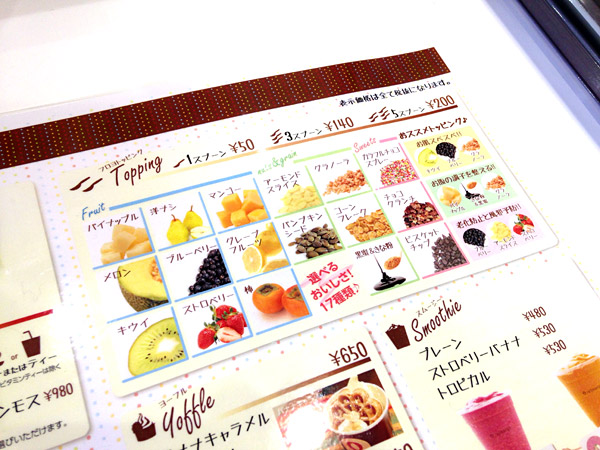 表示価格は全て税抜になります。
フロヨトッピング
Topping
1スプーン ¥50
3スプーン ¥140
5スプーン ¥200
Fruit
パイナップル
洋ナシ
マンゴー
メロン
ブルーベリー
グレープフルーツ
キウイ
ストロベリー
柿
アーモンドスライス
グラノーラ
パンプキンシード
コーンフレーク
Sweets
カラフルチョコスプレー
チョコクランチ
黒蜜&きな粉
ビスケットチップ
選べる
おいしさ!
17種類♪
おススメトッピング♪
お肌スベスベ!!
お腹の調子を整える!!
¥650
ヨーフル
Yoffle
ナナキャラメル
スムージー
Smoothie
プレーン ¥480
ストロベリーバナナ ¥530
トロピカル ¥530
or
ーまたはティー
ンモス ¥980